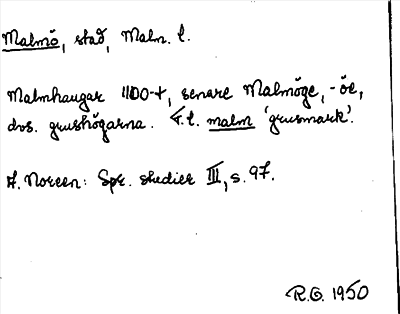 Malmö, stad, Malm. l.
Malmhaugar 1100-t, senare Malmöge, -öe,
dvs. grushögarna. F.l. malm 'grusmark'.
A. Noreen: Spr. studier III, s. 97.
R.O. 1950